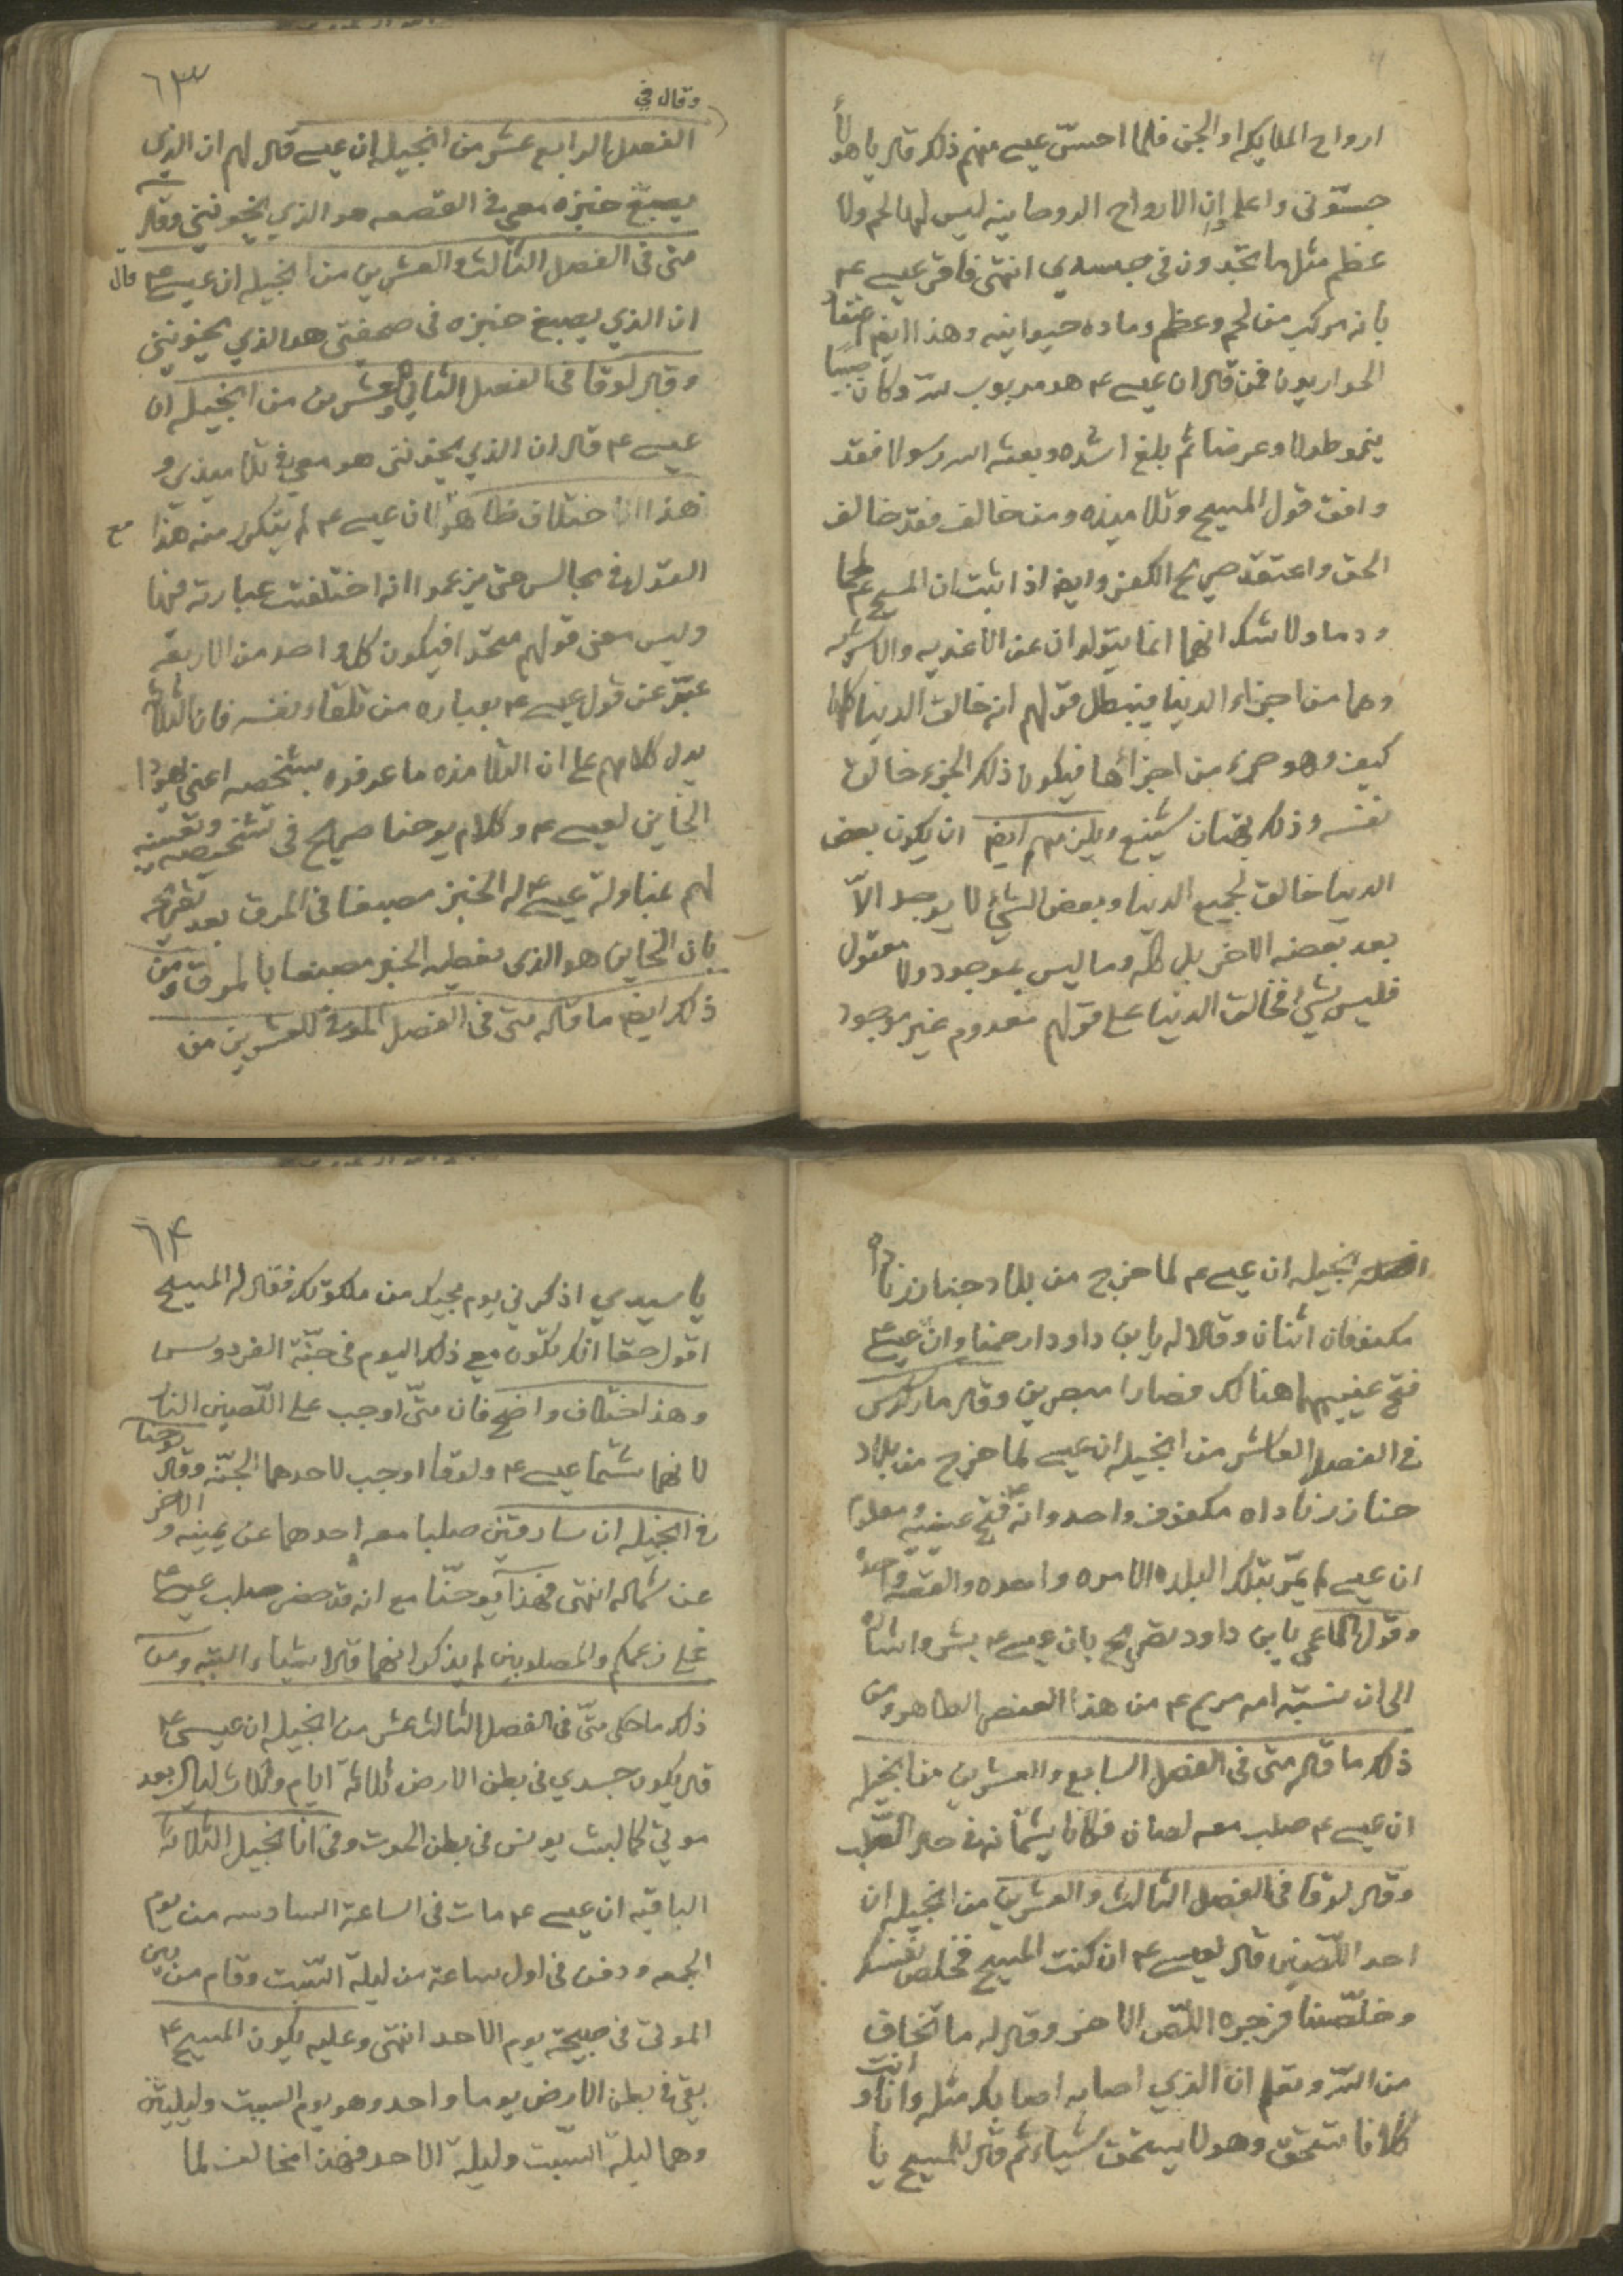 ارواح الملايكه او الجن فلما احسّ عيسى منهم ذلك قال يا هولأ
جسّونى واعلم ان الارواح الروحانيه ليس لها لحم ولا
عظم مثل ما تجدون فى جسدي انتهى فاقر عيسى ع
بانه مركب من لحم وعظم وماده حيوانيه وهذا ايض اعتقاد
الحواريون فمن قال ان عيسى ع هو مربوب لله وكان صبيا
ينمو طولا وعرضا ثم بلغ اشده وبعثه الله رسولا فقد
وافق قول المسيح وتلاميذه ومن خالف فقد خالف
الحق واعتقد صريح الكفر وايض اذا ثبت ان المسيح ع لحما
ودما ولا شك انهما انما يتولدان عن الاغذيه والاشربه
وهما من اجزاء الدنيا فيبطل قولهم انه خالق الدنيا كلها
كيف وهو جزء من اجزائها فيكون ذلك الجزء خالق
نفسه وذلك بهتان شنيع ويلزمهم ايض ان يكون بعض
الدنيا خالق لجميع الدنيا وبعض الشئ لا يوجد الاّ
بعد بعضه الاخر بل كله وما ليس بموجود ولا معقول
فليس بشئ فخالق الدنيا على قولهم معدوم غير موجود
٦٣
وقال في
الفصل الرابع عشر من انجيله ان عيسى قال لهم ان الذي
يصبغ خبزه معي في القصعه هو الذي يخونني وقال
متى فى الفصل الثالث والعشرين من انجيله ان عيسى ع قال
ان الذي يصبغ خبزه فى صحفتى هو الذي يخونني
وقال لوقا فى الفصل الثاني والعشرين من انجيله ان
عيسى ع قال ان الذي يخوننى هو معي في تلاميذي و
هذا اختلاف ظاهر لان عيسى ع لم يتكرر منه هذا
القول في مجالس حتى يزعموا انه اختلفت عبارته فيها
وليس معنى قولهم متحدا فيكون كل واحد من الاربعه
عبّر عن قول عيسى ع بعباره من تلقاء نفسه فان الثلاثة
يدل كلامهم على ان التلامذه ما عرفوه بشخصه اعنى يهودا
الخاين لعيسى ع وكلام يوحنا صريح فى تشخيصه وتعيينه
لهم بمناولة عيسى ع له الخبز مصبغا فى المرق بعد تصريحه
بان الخاين هو الذى يعطيه الخبز مصبغا بالمرق ومن
ذلك ايض ما قاله متى فى الفصل الموفى للعشرين من
انجيله ان عيسى ع لما خرج من بلاد جنازرناداه
مكفوفان اثنان وقالا له يابن داود ارحمنا وانّ عيسى ع
فتح عينيهما هنالك فصارا مبصرين وقال ماركس
فى الفصل العاشر من انجيله ان عيسى لما خرج من بلاد
جنازر ناداه مكفوف واحد وانّه فتح عينيه ومعلوم
ان عيسى لم يمرّ بتلك البلده الا مره واحده والقصه واحدة
وقول الاعمى يابن داود تصريح بان عيسى ع بشر واشاره
الى ان نسبة امه مريم ع من هذا العنصر الطاهر ومن
ذلك ما قاله متى فى الفصل السابع والعشرين من انجيله
ان عيسى ع صلب معه لصان فكانا يشتمانه فى حال الصلب
وقال لوقا فى الفصل الثالث والعشرين من انجيله ان
احد اللّصين قال لعيسى ع ان كنت المسيح فخلص نفسك
وخلّصنا فزجره اللّص الاخر وقال له ما تخاف
من الله وتعلم ان الذي اصابه اصابك مثله وانا وانت
كلانا نستحق وهو لا يستحق شياء ثم قال للمسيح يا
٦٤
يا سيدي اذكرني يوم مجيك من ملكوتك فقال له المسيح
اقول حقا انك تكون مع ذلك اليوم فى جنّة الفردوس
وهذا اختلاف واضح فان متّى اوجب على اللّصين النار
لانهما شتما عيسى ع ولوقا اوجب لاحدهما الجنّه وقال يوحنا
فى انجيله ان سارقين صلبا معه احدهما عن يمينه والاخر
عن شماله انتهى فهذا يوحنّا مع انه قد حضر صلب عيسى ع
على زعمكم والمصلوبين لم يذكر انهما قالا شياء البته ومن
ذلك ما حكى متّى فى الفصل الثالث عشر من انجيله ان عيسى ع
قال يكون جسدي في بطن الارض ثلاثة ايام وثلاث ليال بعد
موتي كما لبث يونس فى بطن الحوت وفى اناجيل الثلاثة
الباقيه ان عيسى ع مات فى الساعة السادسه من يوم
الجمعه ودفن فى اول ساعة من ليلة السّبت وقام من بين
الموتى فى صبيحة يوم الاحد انتهى وعليه يكون المسيح ع
بقى في بطن الارض يوما واحد وهو يوم السبت وليلتين
وهما ليلة السّبت وليلة الاحد فهذا مخالف لما